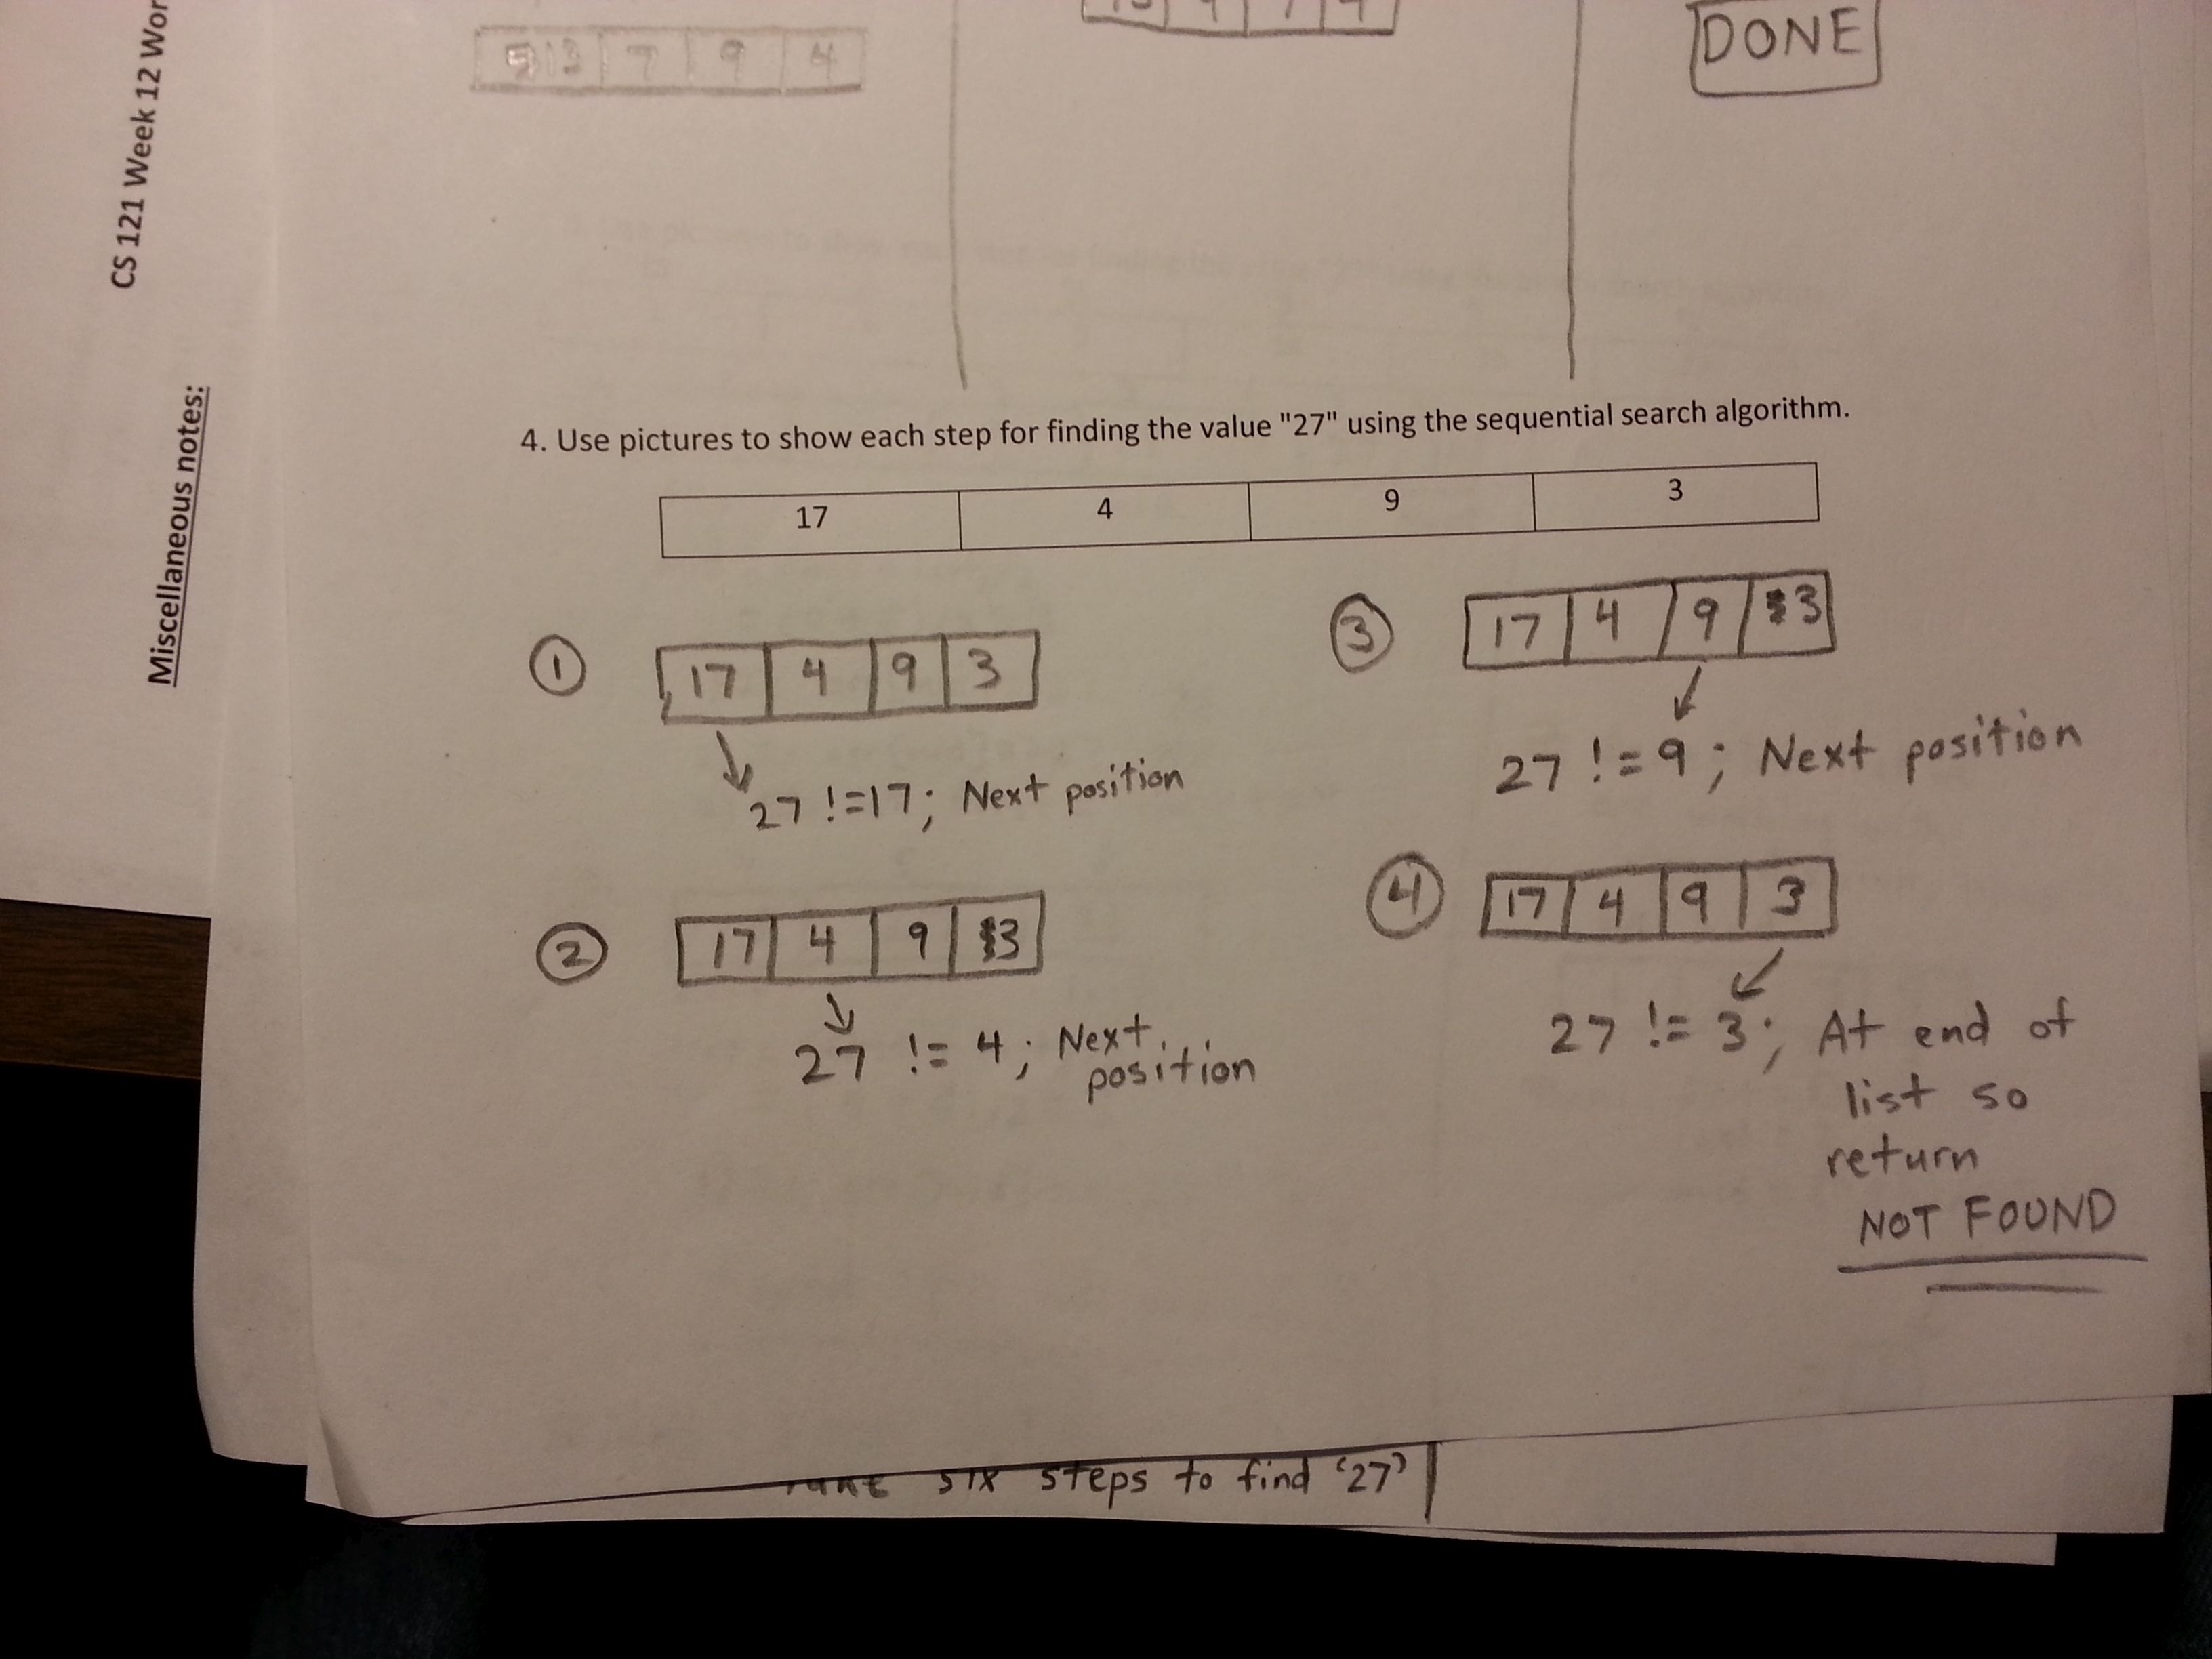 CS 121 Week 12
Miscellaneous notes:
7 9 4
DONE
4. Use pictures to show each step for finding the value "27" using the sequential search algorithm.
17 4 9 3
1
17 4 9 3
27 !=17; Next position
2
17 4 9 3
27 != 4; Next
position
3
17 4 9 3
27 != 9; Next position
4
17 4 9 3
27 != 3; At end of
list so
return
NOT FOUND
six steps to find '27'